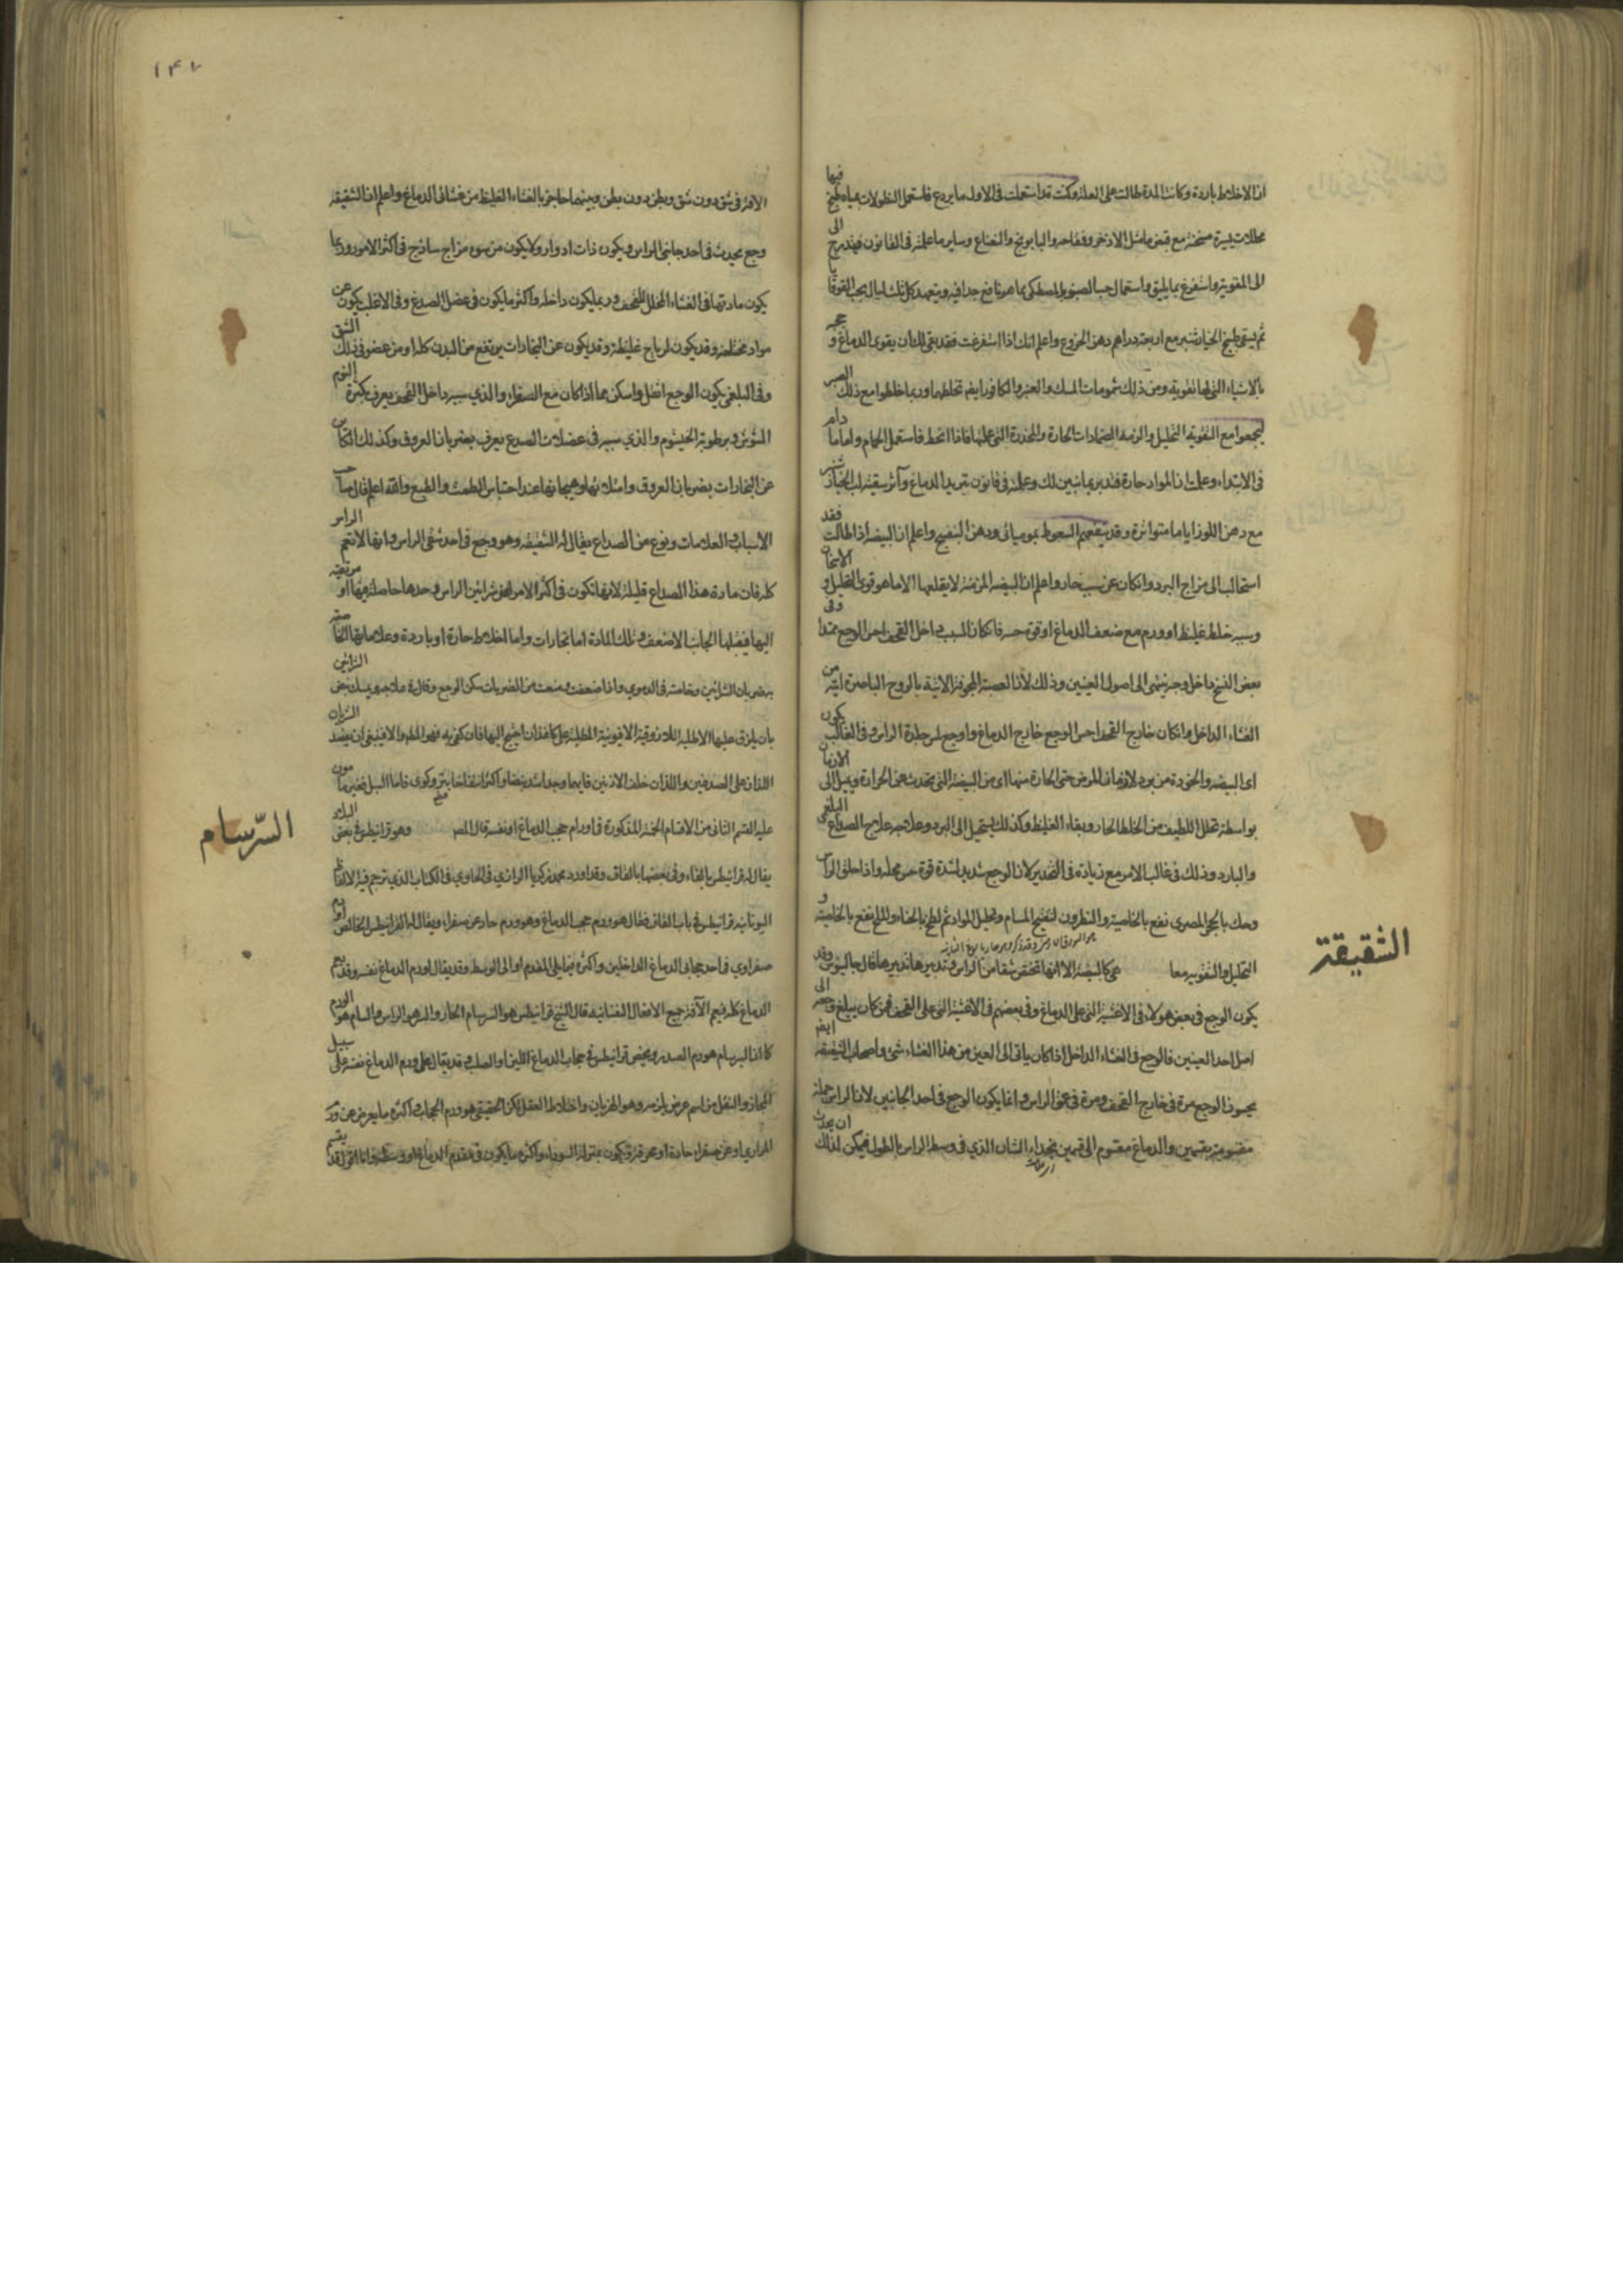 ان الاخلاط باردة وكانت المدة طالت على العلة وكنت قد استعملت فى الاول ما يردع فاستعمل النطولات بمياه طبخ فيها
محللات يسيرة مسخنة مع قبض ما مثل الاذخر وفقاحه والبابونج والنعناع وساير ما علمته فى القانون فيتدرج الى
الى المقوية واستفرغ بما يليق واستعمال حب الصبر والمصطكى مما هو نافع جدا فيه ويتعهد كل ثلث ليال بحب القوقايا
ثم يسقى طبيخ الخيارشنبر مع اربعة دراهم دهن الخروع واعلم انك اذا استفرغت فقد بقى لك ان يقوى الدماغ و
بالاشياء التى لها تقوية ومن ذلك شمومات المسك والعنبر والكافور ايضا تخلطها وربما خلطوا مع ذلك الصبر
ليجمعوا مع التقوية التحليل والزمه الضمادات الحارة والمخدرة التى علمتها فاذا انحط فاستعمل الحمام واما ما دام
فى الابتداء وعلمت ان المواد حارة فتدبر بما نبين لك وعلمته فى قانون تبريد الدماغ وآثر سقيه لب الخيار شنبر
مع دهن اللوز اياما متواترة وقد ينفعهم السعوط بموميائى ودهن البنفسج واعلم ان البيضة اذا طالت فقد
استحالت الى مزاج البرد وان كان عن سبب حار واعلم ان البيضة المزمنة لا يقلعها الا ما هو قوى التحليل و الاسخان
وسببه خلط غليظ او ورم مع ضعف الدماغ او قوة حسه فان كان السبب داخل القحف احس الوجع ممتدا وفى
بعض النسخ داخلا وجزء ينتهى الى اصول العينين وذلك لان العصبة المجوفة الاتية بالروح الباصرة اتية من
الغشاء الداخل وان كان خارج القحف احس الوجع خارج الدماغ واوجع لمس جلدة الراس وفى الغالب يكون
اى البيضة والخوذة من برد لازمان المرض حتى الحارة منها اى من البيضة التى تحدث عن الحرارة ويميل الى الازمان
بواسطة تحلل اللطيف من الخلط الحار وبقاء الغليظ وكذلك يستحيل الى البرد وعلاجه علاج الصداع البلغمى
والبارد وذلك فى غالب الامر مع زيادة فى التخدير لان الوجع شديد لشدة قوة حس محله واذا حلق الراس
وحك بالحجر المصرى نفع بالخاصية والنطرون لتفتيح المسام وتحليل المواد ثم لطخ بالحناء والملح نفع بالخاصية و
التحليل والتقوية معا هى كالبيضة الا انها تختص شقا من الراس وتدبيرها تدبيرها قال جالينوس وقد
يكون الوجع فى بعض هولاء فى الاغشية التى على الدماغ وفى بعضهم فى الاغشية التى على القحف فمن كان يبلغ وجعه الى
اصل احد العينين فالوجع فى الغشاء الداخل اذا كان ياتى الى العين من هذا الغشاء شئ واصحاب الشقيقة ايضا
يحسون الوجع مرة فى خارج القحف ومرة فى عمق الراس وانما يكون الوجع فى احد الجانبين لان الراس جملة
مقسومة بقسمين والدماغ مقسوم الى قسمين بحذاء الشان الذي فى وسط الراس بالطول فيمكن لذلك ان يحدث
الشقيقة
١٤٧
الافة فى شق دون شق وبطن دون بطن وبينهما حاجز بالغشاء الغليظ من غشائى الدماغ واعلم ان الشقيقة
وجع يحدث فى احد جانبى الراس ويكون ذات ادوار ولا يكون من سوء مزاج ساذج فى اكثر الامور وربما
يكون مادتها فى الغشاء المجلل للقحف وربما يكون داخله واكثر ما يكون فى عضل الصدغ وفى الاغلب يكون عن
مواد مختلفة وقد يكون لرياح غليظة وقد يكون عن البخارات يرتفع من البدن كله او من عضو فى ذلك الشق
وفى البلغمى يكون الوجع اثقل واسكن مما اذا كان مع الصفراء والذي سببه داخل القحف يعرف بكثرة النوم
وبرطوبة الخيشوم والذي سببه فى عضلات الصدغ يعرف بضربان العروق وكذلك الكائن
عن البخارات بضربان العروق وامتلائها وهيجانها عند احتباس الطمث والطبع والله اعلم قال صاحب
الاسباب والعلامات ونوع من الصداع يقال له الشقيقة وهو وجع فى احد شقى الراس وانها لا تعم الراس
كله فان مادة هذا الصداع قليلة لانها تكون فى اكثر الامر فى شرائين الراس وحدها حاصلة فيها او مرتقية
اليها فيقبلها الجانب الاضعف وتلك المادة اما بخارات واما اخلاط حارة او باردة وعلاماتها الخاصة
بها ضربان الشرائين وخاصة فى الدموي واذا ضعفت ومنعت من الضربان سكن الوجع وقال فى علاجه ويسكن نبض الشرائين
بان يلزق عليها الاطلية اللازوقية الافيونية المطلية على كاغذ ان احتيج اليها فان كفى به فهو المطلوب والا فينبغى ان يفصد الشريان
اللذان على الصدغين واللذان خلف الاذنين فايهما وجد اشد نبضا واكثر انتفاخا يبتر وكوى فاما السل فغير مامون
عليه القسم الثانى من الاقسام الخمسة المذكورة فى اورام حجب الدماغ او نفسه قال المصـ وهو قرانيطس فى بعض البلاد
يقال له فرانيطس بالفاء وفى بعضها بالقاف وقد اورد محمد بن زكريا الرازي فى الحاوي فى الكتاب الذي ترجم فيه الالفاظ
اليونانية قرانيطس فى باب القاف فقال هو ورم حجب الدماغ وهو ورم حار عن صفراء ويقال له القرانيطس الخالص او دم
صفراوي فى احد حجابى الدماغ الداخلين واكثره مما يلى المقدم او الى الوسط وقد يقال لورم الدماغ نفسه وقد يعم
الدماغ كله فيعم الآفة جميع الافعال النفسانية قال الشيخ قرانيطس هو السرسام الحار والسر هو الراس والسام هو الورم
كما ان البرسام هو ورم الصدر ويخص قرانيطس فى حجاب الدماغ اللين او الصلب وقد يقال على ورم الدماغ نفسه على سبيل
المجاز والنقل من اسم عرض يلزمه وهو الهذيان واختلاط العقل لكن الحقيقى هو ورم الحجاب واكثره ما يعرض عن ورم
المراري او عن صفراء حادة او محرقة تكون بمنزلة السوداء واكثر ما يكون فى مقدم الدماغ او وسطه
السّرسام